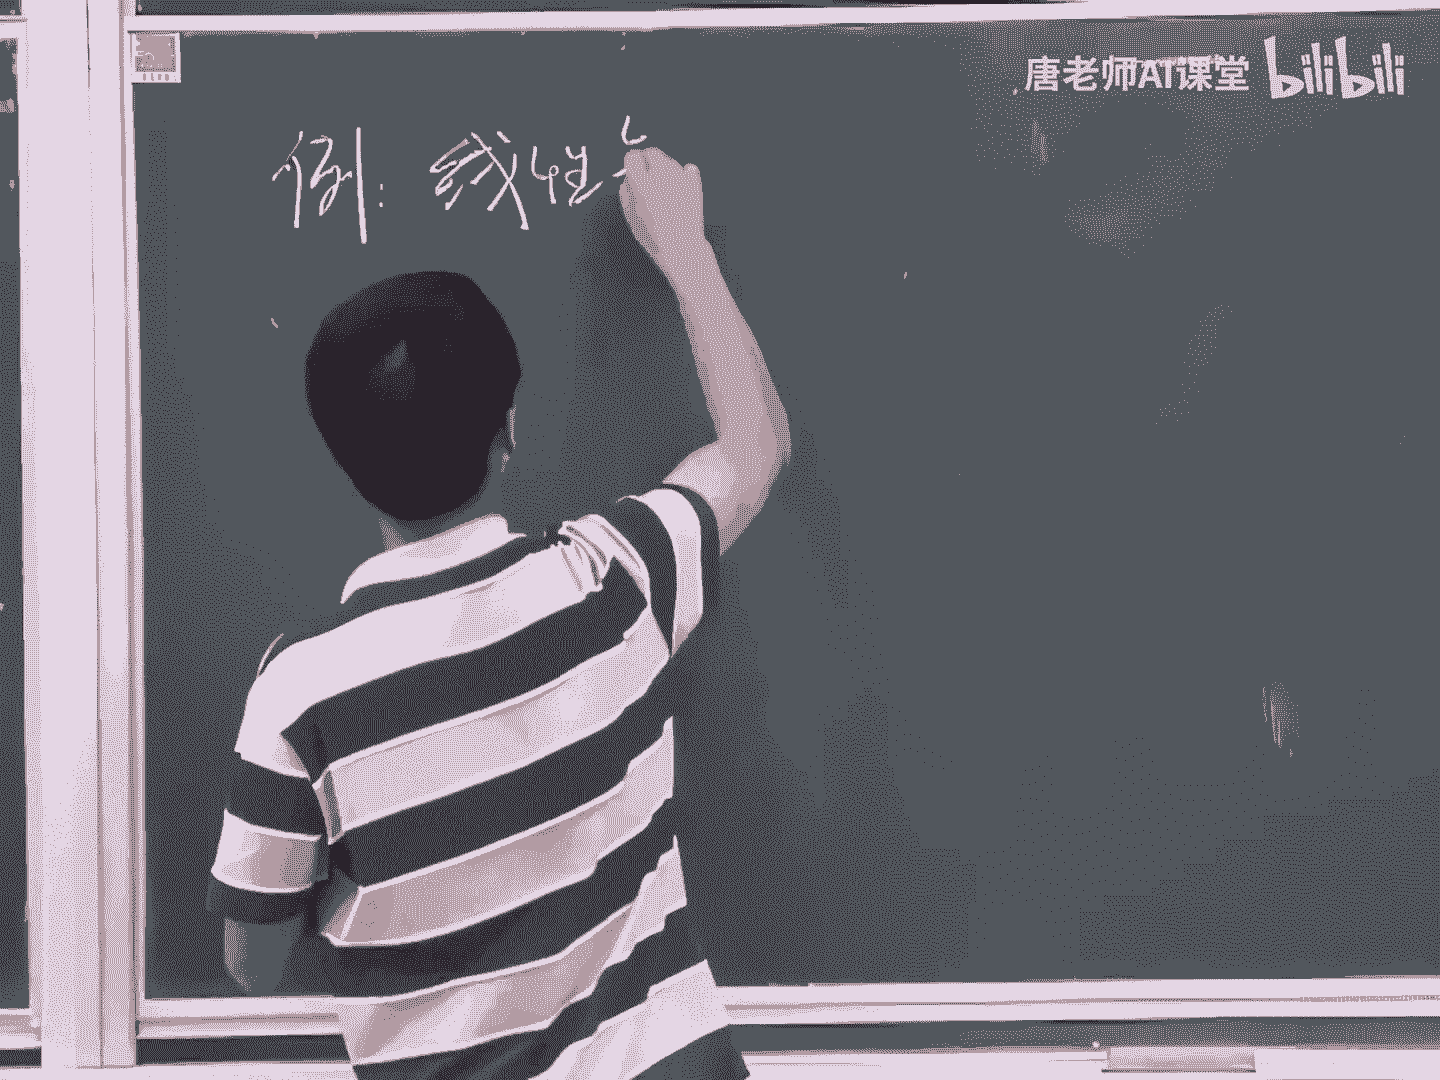 唐老师AI课堂 bilibili
例: 线性